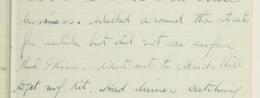 business. Walked around the streets
for awhile but did not see anyone
that I knew. Went out to
to get my kit. Had dinner